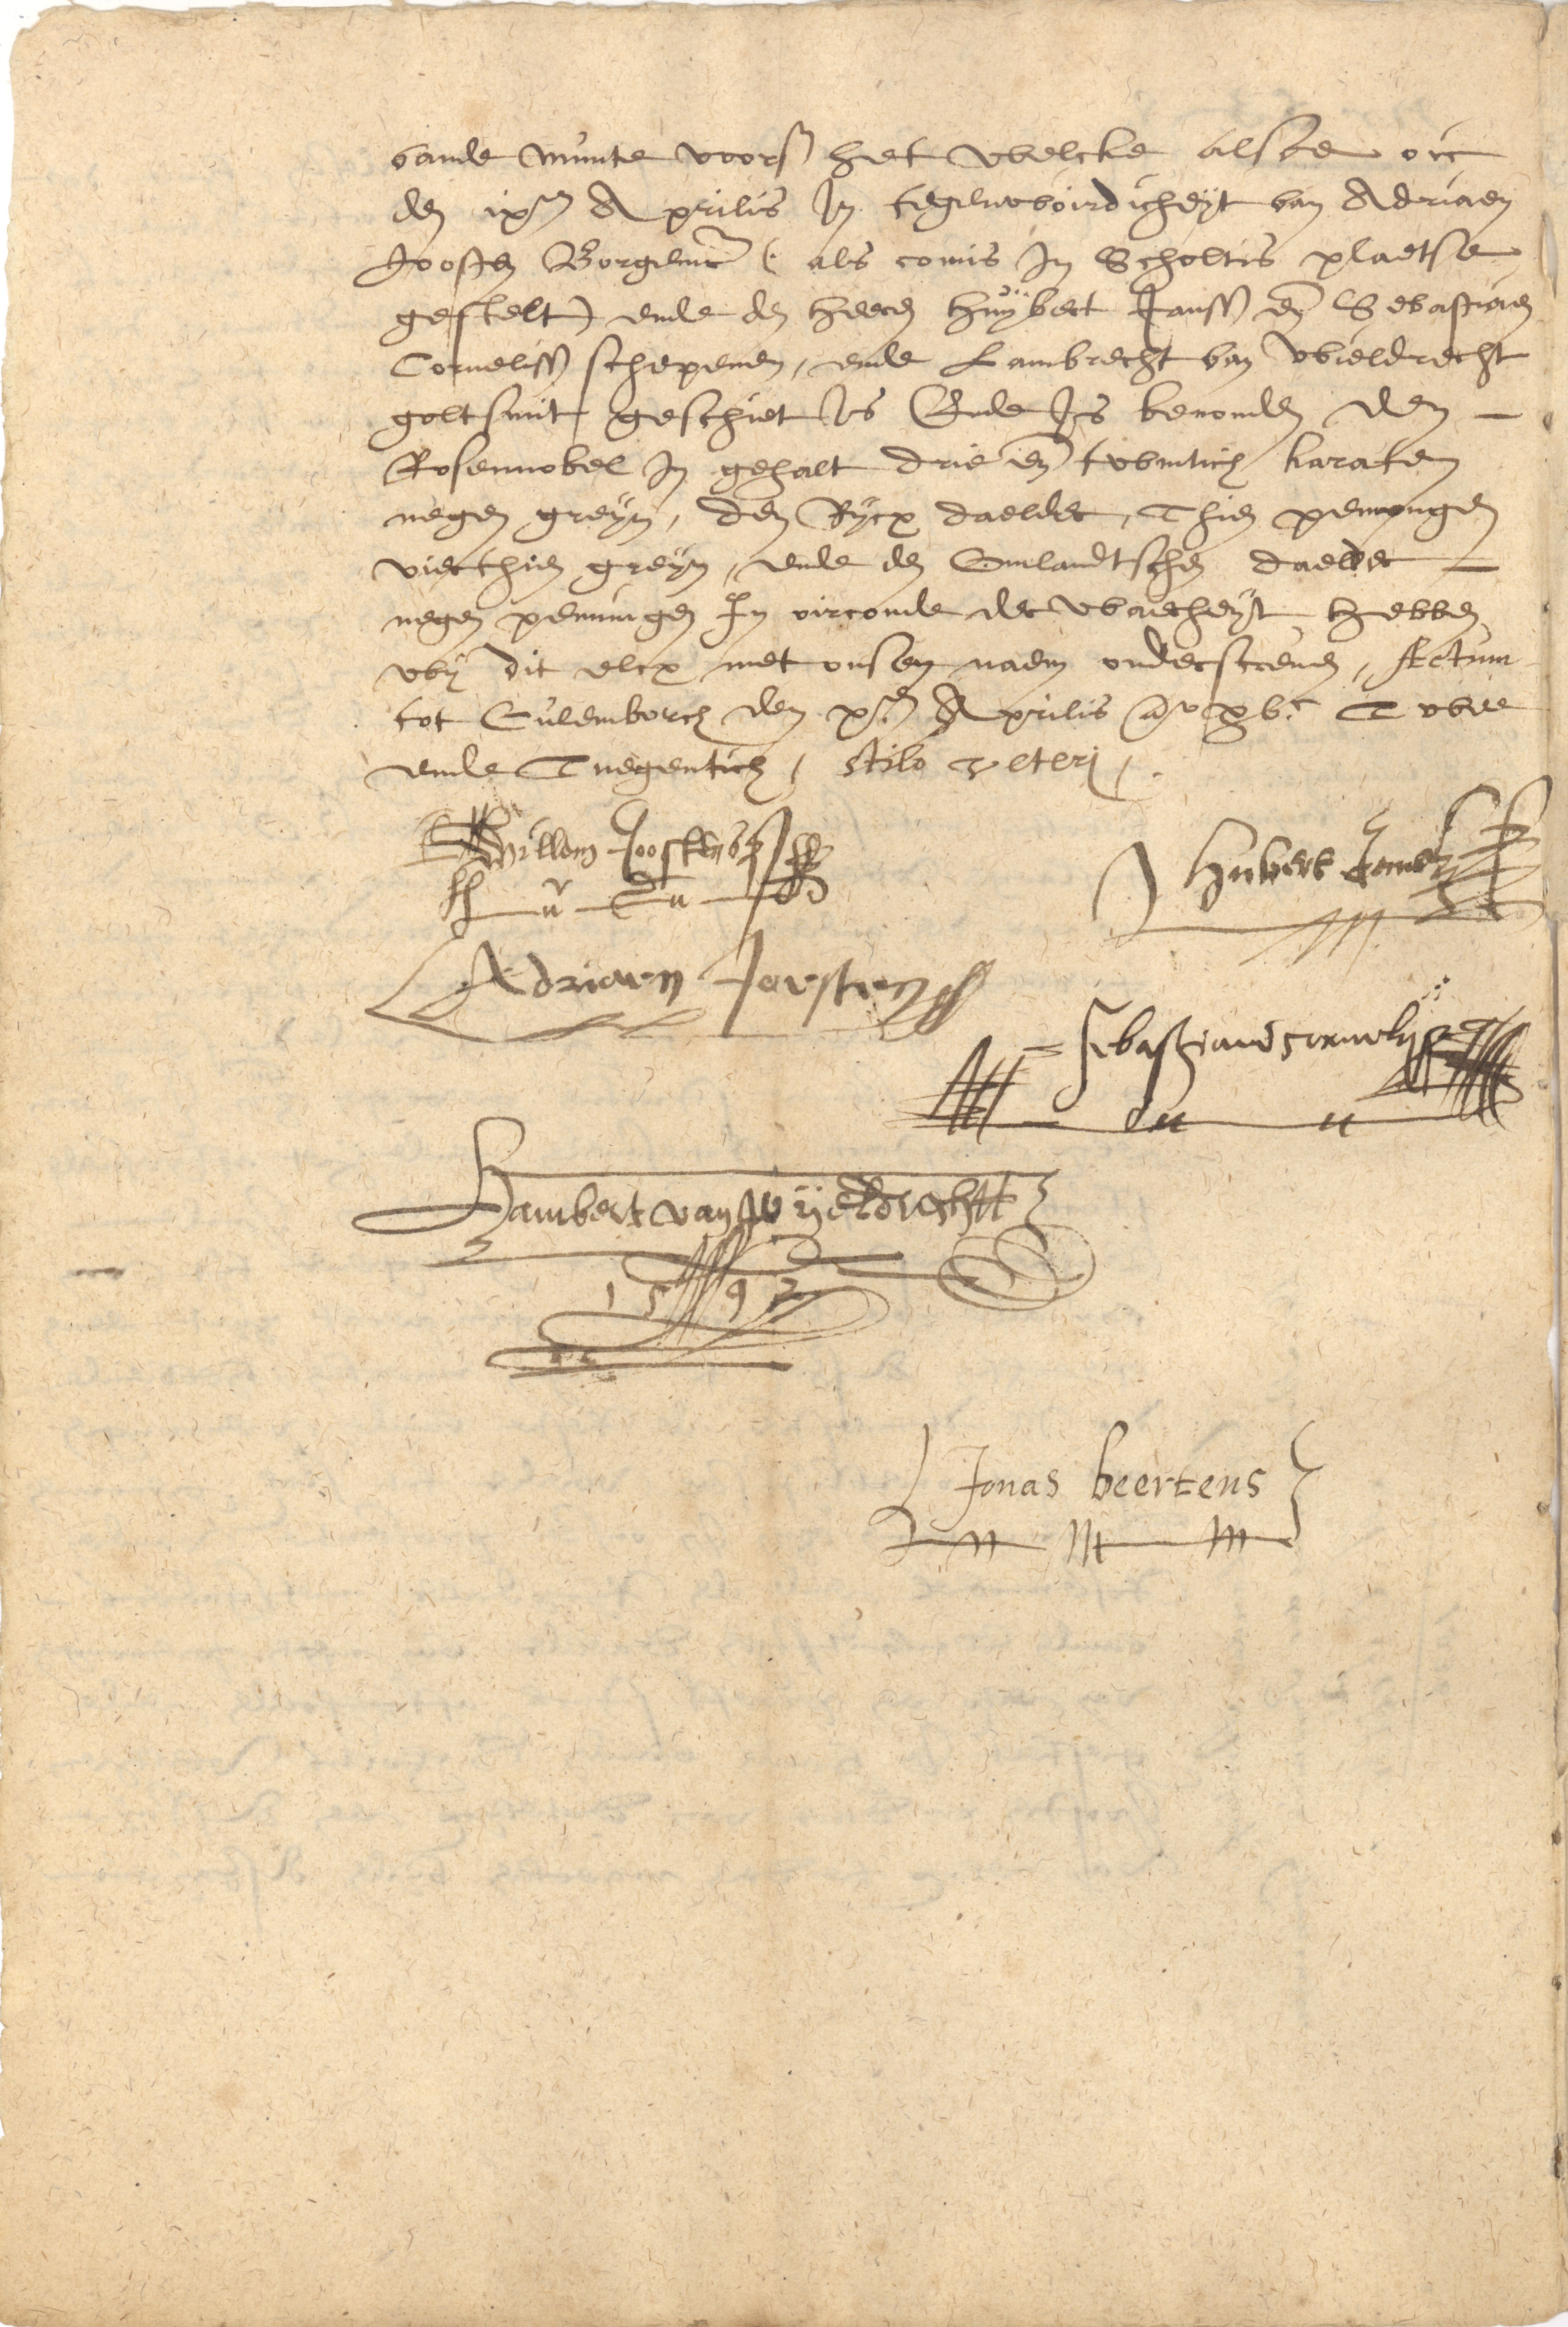 vande Munte voors. het welcke alsoe oic
den ixen Aprilis In tegenwoirdicheyt van Adriaen
Joosten Borgemr (als comis In Scholtis plaetse
gestelt) ende de heeren Huÿbert Janss en Sebastiaen
Corneliss schepenen, ende Lambrecht van Wieldrecht
goltsmit, geschiet Is Ende Is bevonden den
Rosennobel In gehalt drie en twintich karaten
negen greyn, den Rycx daelder, Thien penningen
vierthien greyn, ende de Emlandtschen daelder
negen penningen In oirconde der waerheyt hebben
wy dit elcx met onsen naem onderscreven, Actum
tot Culemborch den xen Aprilis ao xvc Twee
ende Tnegentich, stilo veteri,.
Willem Joosten
Hubert Jansz
Adriaen Joosten
Sebastiaen Corneliss
Lambert van Wÿeldrecht
1592
Jonas beertens